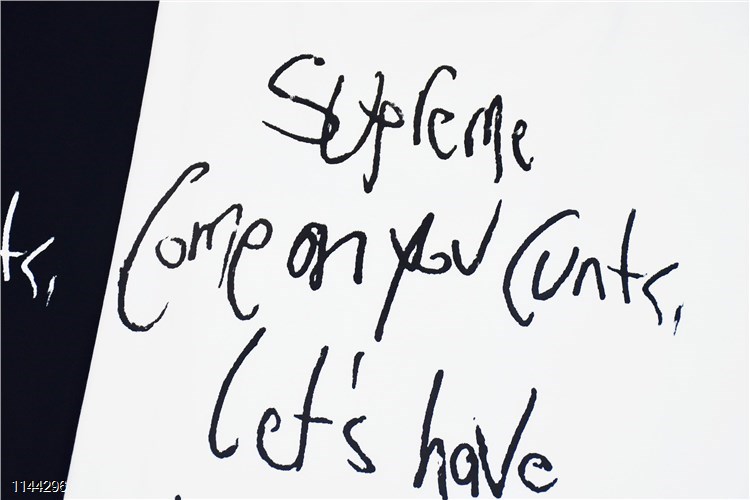 Supreme
Come on you
Cunts,
ts,
Let's have
1144296